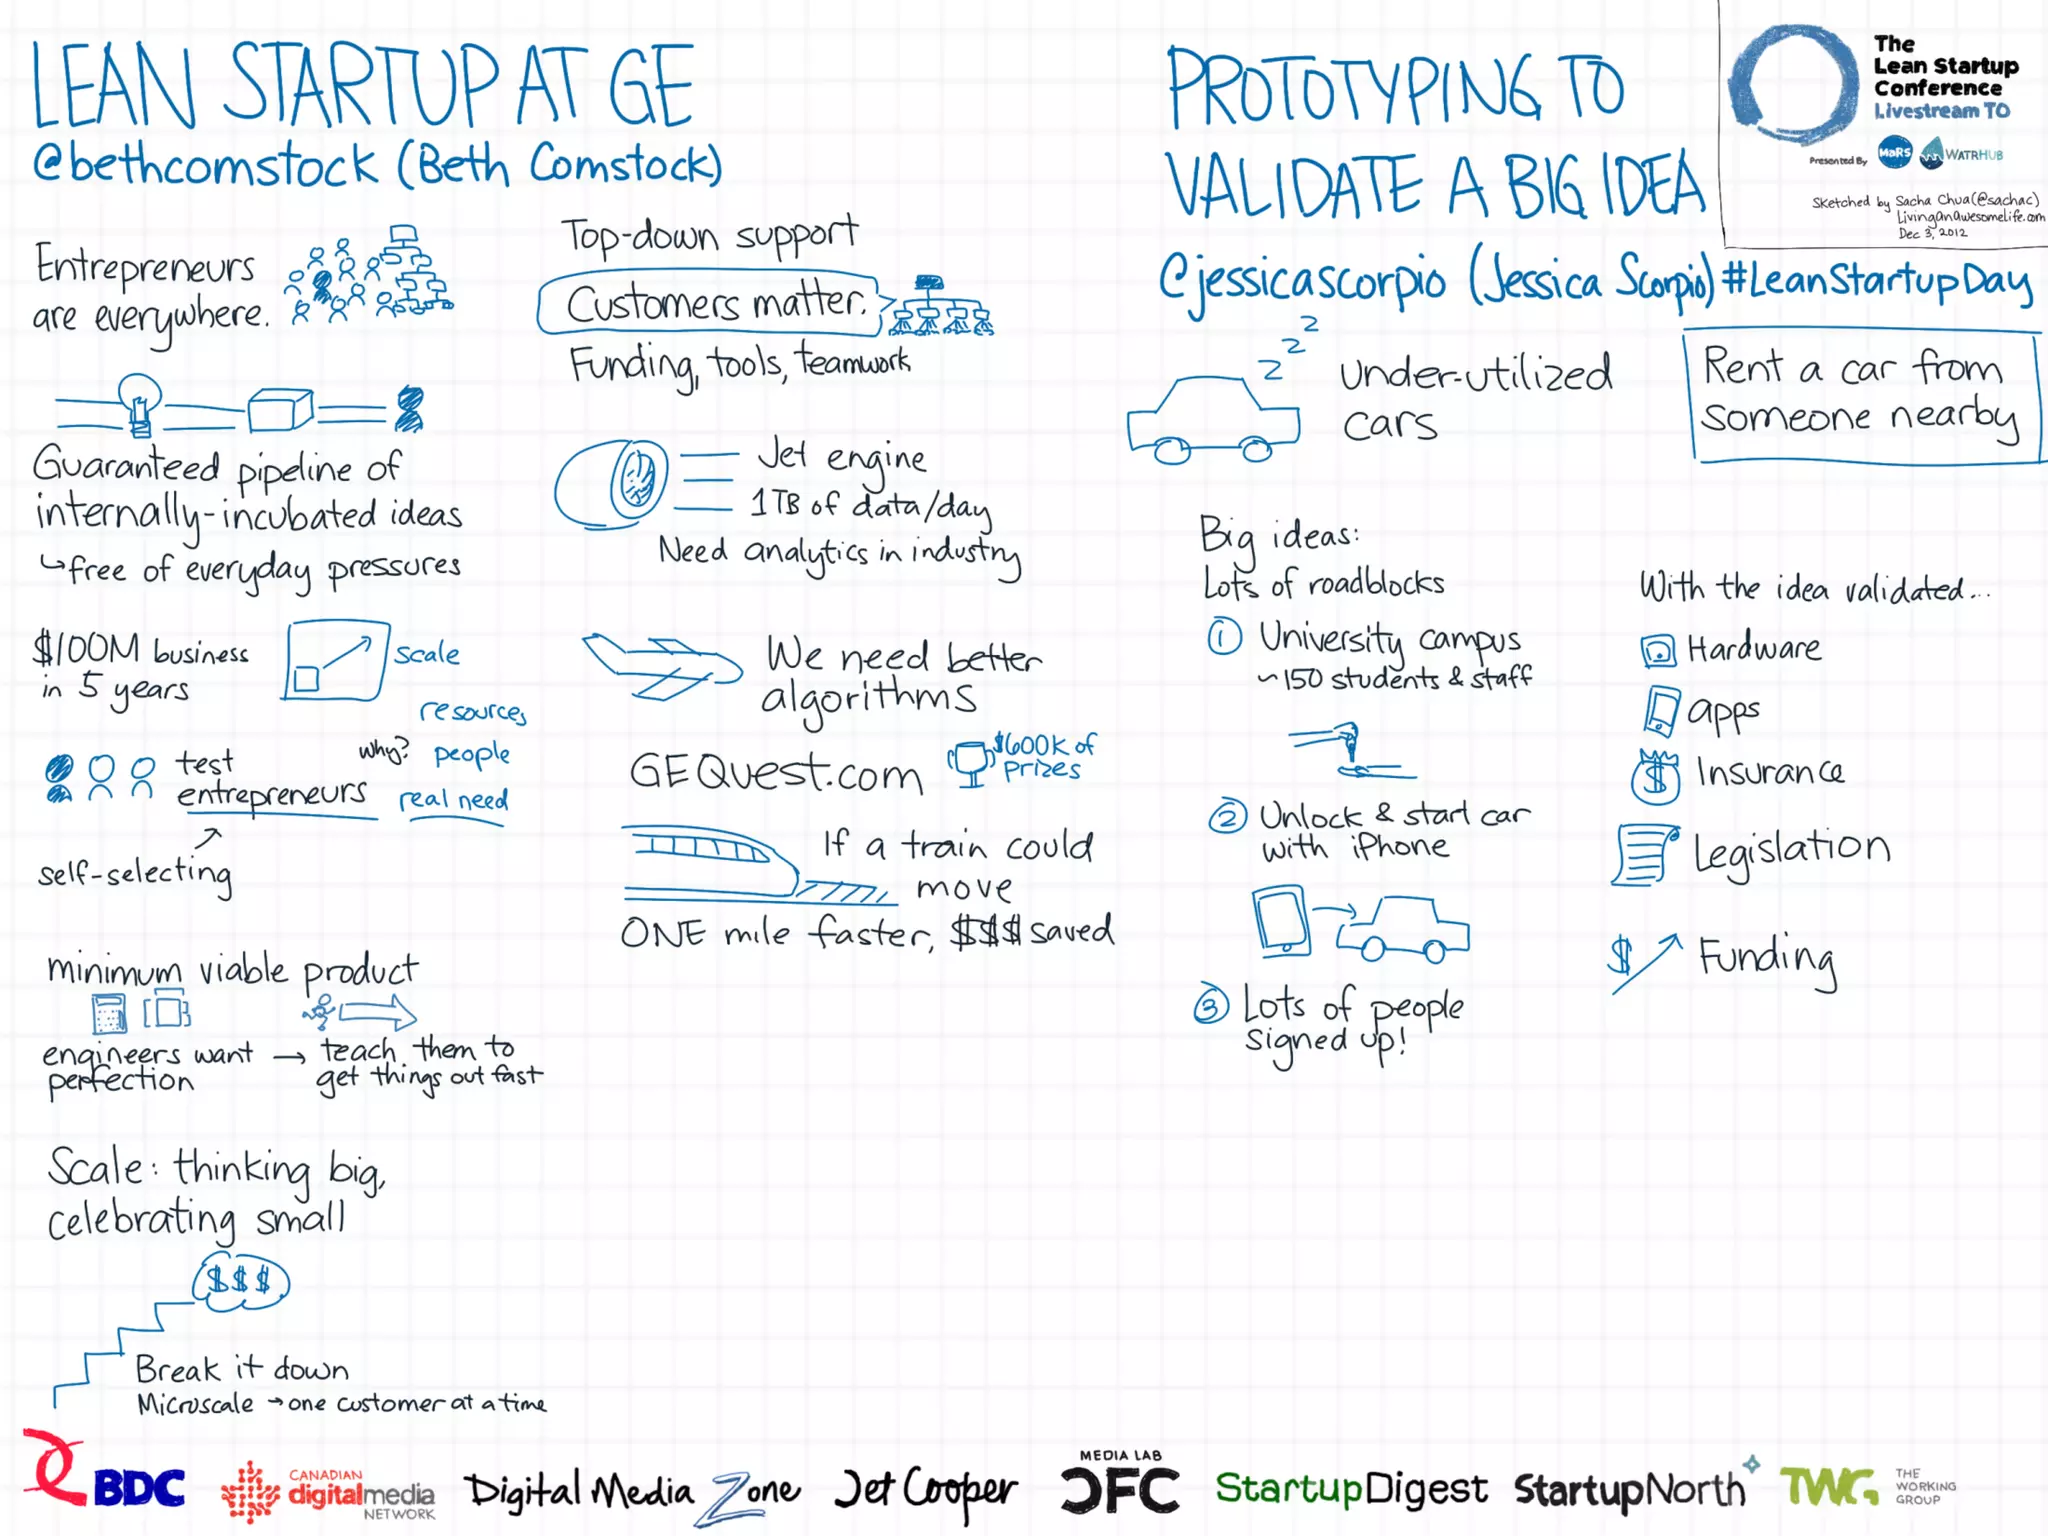 LEAN STARTUP AT GE
@bethcomstock (Beth Comstock)
Entrepreneurs
are everywhere.
Guaranteed pipeline of
internally-incubated ideas
↳free of everyday pressures
$100M business
in 5 years
scale
resources
why? people
real need
test
entrepreneurs
self-selecting
minimum viable product
engineers want → teach them to
perfection get things out fast
Scale: thinking big,
celebrating small
$$$
Break it down
Microscale → one customer at a time
Top-down support
Customers matter.
Funding, tools, teamwork
Jet engine
1TB of data/day
Need analytics in industry
We need better
algorithms
GEQuest.com
$600K of
prizes
If a train could
move
ONE mile faster, $$$ saved
PROTOTYPING TO
VALIDATE A BIG IDEA
@jessicascorpio (Jessica Scorpio) #LeanStartupDay
The
Lean Startup
Conference
Livestream TO
Presented By MaRS WATRHUB
Sketched by Sacha Chua (@sachac)
LivingAnAwesomeLife.com
Dec 3, 2012
z z z
under-utilized
cars
Rent a car from
someone nearby
Big ideas:
Lots of roadblocks
① University campus
~150 students & staff
② Unlock & start car
with iPhone
③ Lots of people
signed up!
With the idea validated...
Hardware
apps
$ Insurance
Legislation
$ Funding
BDC
CANADIAN
digitalmedia
NETWORK
Digital Media Zone
Jet Cooper
MEDIA LAB
CFC
StartupDigest
StartupNorth
TWG
THE
WORKING
GROUP